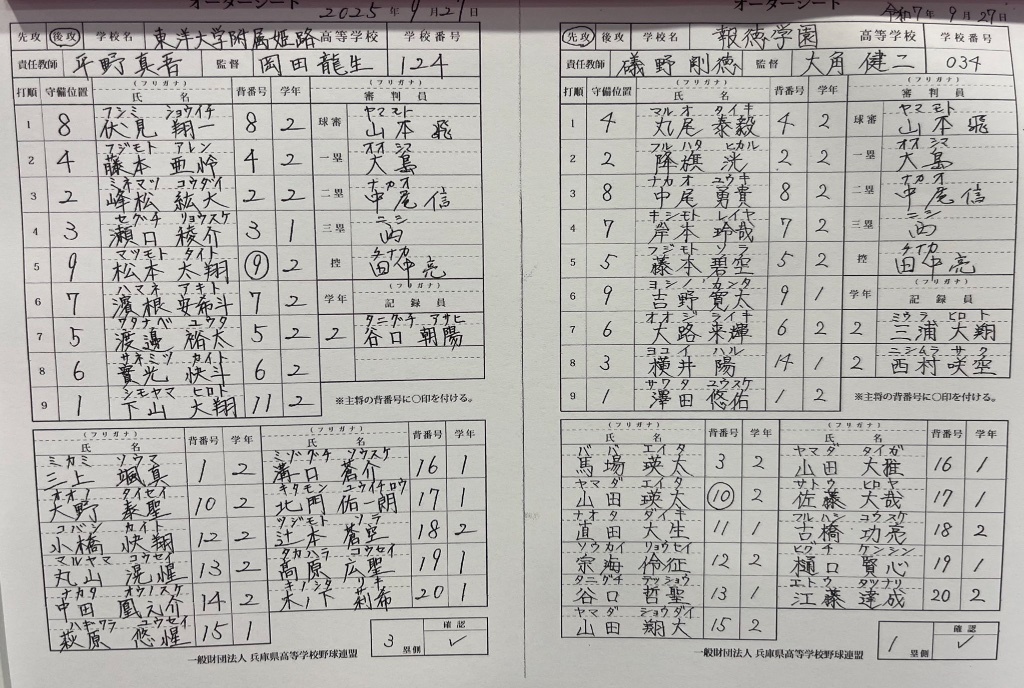 オーダーシート
2025年 9月27日
先攻 後攻 学校名 東洋大学附属姫路 高等学校 学校番号
責任教師 平野真吾 監督 岡田龍生 124
打順 守備位置 (フリガナ) 氏名 背番号 学年 (フリガナ) 審判員
フシミ ショウイチ ヤマモト
1 8 伏見 翔一 8 2 球審 山本 飛
フジモト アレン オオシマ
2 4 藤本 亜怜 4 2 一塁 大島
ミネマツ コウダイ ナカオ
3 2 峰松 紘大 2 2 二塁 中尾 信
セグチ リョウスケ ニシ
4 3 瀬口 稜介 3 1 三塁 西
マツモト タイト タナカ
5 9 松本 大翔 9 2 控 田中 亮
ハマネ アキト (フリガナ)
6 7 濱根 安希斗 7 2 学年 記録員
ワタナベ ユウタ タニグチ アサヒ
7 5 渡邊 裕太 5 2 2 谷口 朝陽
サネミツ カイト
8 6 實光 快斗 6 2
シモヤマ ヒロト
9 1 下山 大翔 11 2 ※主将の背番号に○印を付ける。
(フリガナ) 氏名 背番号 学年 (フリガナ) 氏名 背番号 学年
ミカミ ソウマ ミゾグチ ソウスケ
三上 颯真 1 2 溝口 蒼介 16 1
オオノ タイセイ キタモン ユウイチロウ
大野 泰聖 10 2 北門 佑一朗 17 1
コバシ カイト ツジモト ソラ
小橋 快翔 12 2 辻本 蒼空 18 2
マルヤマ コウセイ タカハラ コウセイ
丸山 滉惺 13 2 高原 広聖 19 1
ナカタ オウノスケ キノシタ リキ
中田 凰之介 14 2 木ノ下 莉希 20 1
ハギワラ ユウセイ
萩原 悠惺 15 1
3 塁側 確認 ✓
一般財団法人 兵庫県高等学校野球連盟
オーダーシート
令和7年 9月27日
先攻 後攻 学校名 報徳学園 高等学校 学校番号
責任教師 礒野剛徳 監督 大角健二 034
打順 守備位置 (フリガナ) 氏名 背番号 学年 (フリガナ) 審判員
マルオ タイキ ヤマモト
1 4 丸尾 泰毅 4 2 球審 山本 飛
フルハタ ヒカル オオシマ
2 2 降旗 洸 2 2 一塁 大島
ナカオ ユウキ ナカオ
3 8 中尾 勇貴 8 2 二塁 中尾 信
キシモト レイヤ ニシ
4 7 岸本 玲哉 7 2 三塁 西
フジモト ソラ タナカ
5 5 藤本 碧空 5 2 控 田中 亮
ヨシノ カンタ (フリガナ)
6 9 吉野 寛太 9 1 学年 記録員
オオジ ライキ ミウラ ヒロト
7 6 大路 来輝 6 2 2 三浦 大翔
ヨコイ ハル ニシムラ サク
8 3 横井 陽 14 1 2 西村 咲空
サワタ ユウスケ
9 1 澤田 悠佑 1 2 ※主将の背番号に○印を付ける。
(フリガナ) 氏名 背番号 学年 (フリガナ) 氏名 背番号 学年
ババ エイタ ヤマダ タイガ
馬場 瑛太 3 2 山田 大雅 16 1
ヤマダ エイタ サトウ ヒロヤ
山田 瑛太 10 2 佐藤 大哉 17 1
ナオタ ダイキ フルハシ コウスケ
直田 大生 11 1 古橋 功亮 18 2
ソウカイ リョウセイ ヒグチ ケンシン
宗海 伶征 12 2 樋口 賢心 19 1
タニグチ テッショウ エトウ タツナリ
谷口 哲聖 13 1 江藤 達成 20 2
ヤマダ ショウダイ
山田 翔大 15 2
1 塁側 確認 ✓
一般財団法人 兵庫県高等学校野球連盟